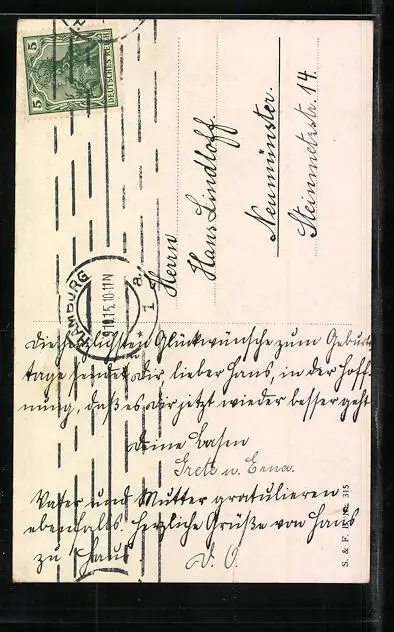 5 5
DEUTSCHES REICH
HAMBURG
9.10.15.10-11N
* 1 a.
Herrn
Hans Lindloff.
Neumünster.
Steinmetzstr. 14.
Die herzlichsten Glückwünsche zum Geburts-
tage sendet Dir, lieber Hans, in der Hoff-
nung, daß es Dir jetzt wieder besser geht
Deine Basen
Grete u. Erna.
Vater und Mutter gratulieren
ebenfalls. Herzliche Grüße von Haus
zu Haus D. O.
S. & F. 315